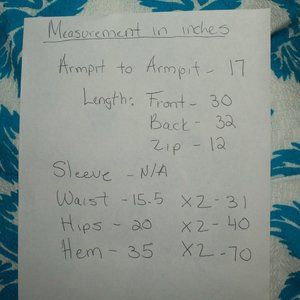 Measurement in inches
Armpit to Armpit - 17
Length: Front - 30
Back - 32
Zip - 12
Sleeve - N/A
Waist - 15.5 X2 - 31
Hips - 20 X2 - 40
Hem - 35 X2 - 70